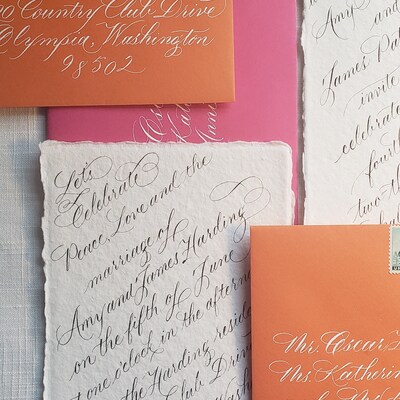 Country Club Drive
Olympia, Washington
98502
Let's
Celebrate
Peace, Love and the
marriage of
Amy and James Harding
on the fifth of June
at one o'clock in the
the Harding
Club Drive
Amy and
James
invite
celebrate
fourth
two
Mr. Oscar
Ms. Katherine